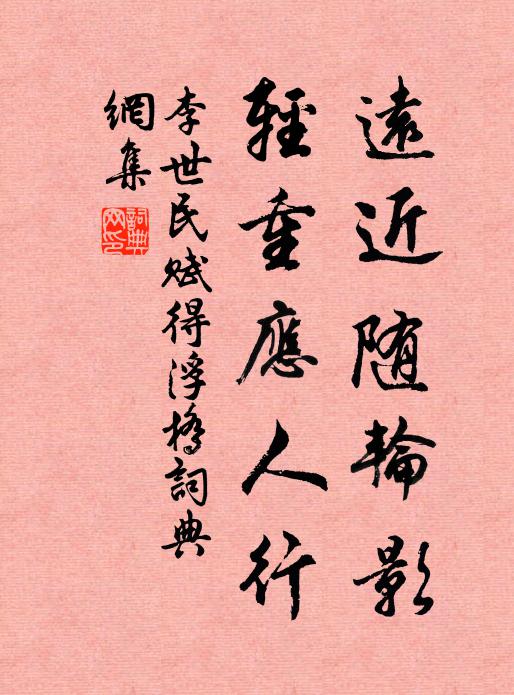 遠近随輪影
輕重應人行
李世民賦得浮橋詞典
網集
詞典
网印